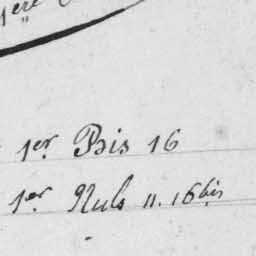 1ere
"
1er. Bis 16
1er. Nuls 11. 16bis